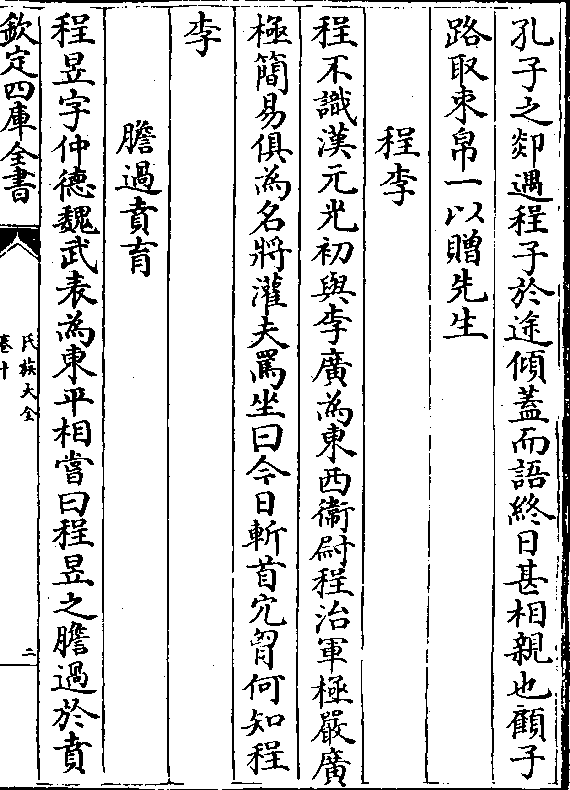 孔子之郯遇程子於途傾蓋而語終日甚相親也顧子
路取束帛一以贈先生
程李
程不識漢元光初與李廣為東西衞尉程治軍極嚴廣
極簡易俱為名將灌夫罵坐曰今日斬首穴胷何知程
李
膽過賁育
程昱字仲德魏武表為東平相嘗曰程昱之膽過於賁
欽定四庫全書
氏族大全
卷十
二